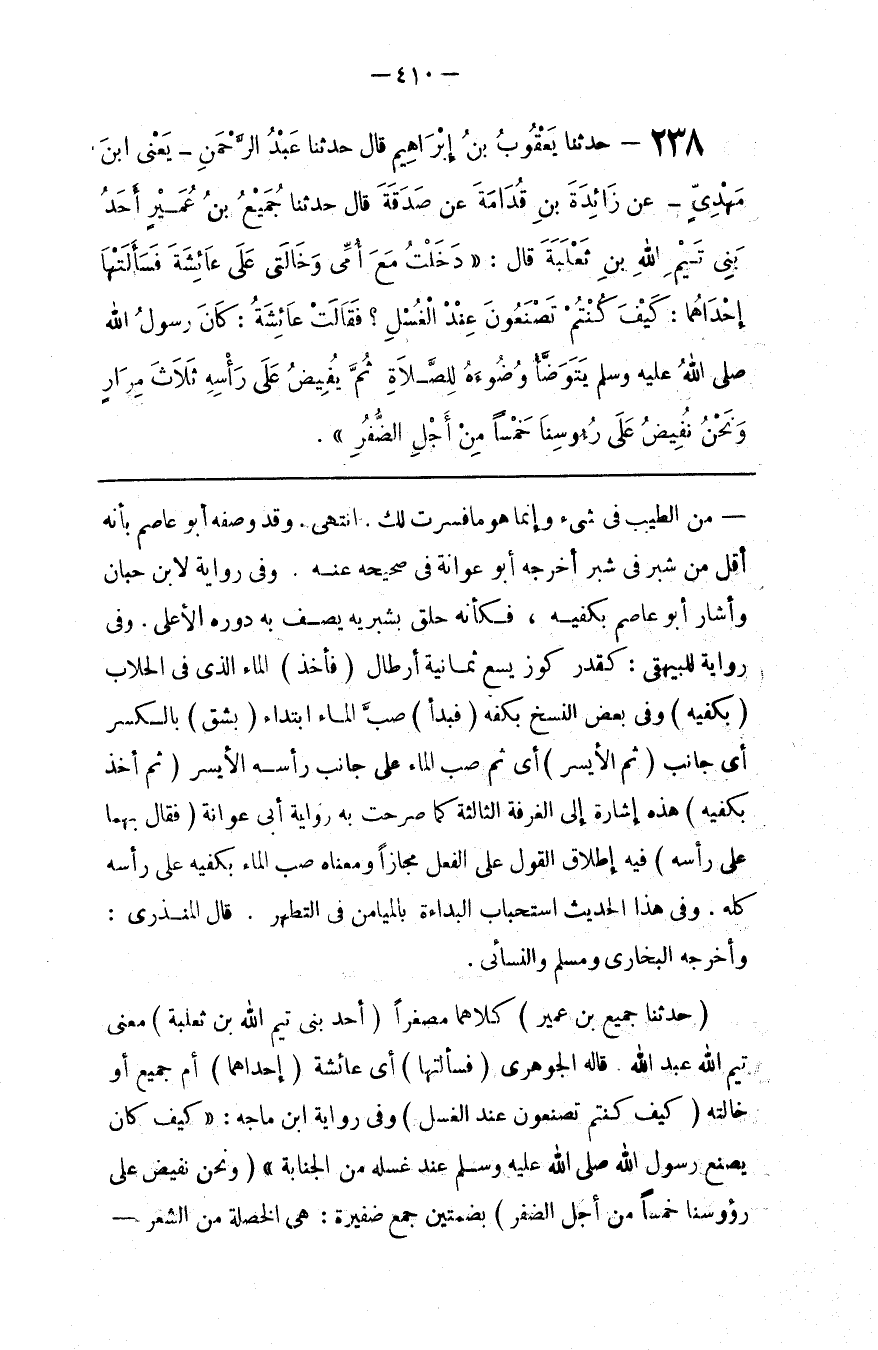 — ٤١٠ —
٢٣٨ — حدثنا يَعْقُوبُ بنُ إِبْرَاهِيم قال حدثنا عَبْدُ الرَّحْمَنِ – يَعْنى ابنَ
مَهْدِىّ – عن زَائِدَةَ بنِ قُدَامَةَ عن صَدَقَةَ قال حدثنا جُمَيْعُ بنُ عُمَيْرٍ أَحَدُ
بَنِى تَيْمِ اللهِ بنِ ثَعْلَبَةَ قال : « دَخَلْتُ مَعَ أُمِّى وَخَالَتِى عَلَى عَائِشَةَ فَسَأَلَتْهَا
إِحْدَاهُمَا : كَيْفَ كُنْتُمْ تَصْنَعُونَ عِنْدَ الْغُسْلِ ؟ فَقَالَتْ عَائِشَةُ : كَانَ رسولُ الله
صلى اللهُ عليه وسلم يَتَوَضَّأُ وُضُوءَهُ لِلصَّلاَةِ ثُمَّ يُفِيضُ عَلَى رَأْسِهِ ثَلَاثَ مِرَارٍ
وَنَحْنُ نُفِيضُ عَلَى رُءوسِنَا خَمْساً مِنْ أَجْلِ الضُّفُرِ » .
— من الطيب فى شىء وإنما هو مافسرت لك . انتهى . وقد وصفه أبو عاصم بأنه
أقل من شبر فى شبر أخرجه أبو عوانة فى صحيحه عنه . وفى رواية لابن حبان
وأشار أبو عاصم بكفيه ، فكأنه حلق بشبريه يصف به دوره الأعلى . وفى
رواية للبيهقى : كقدر كوز يسع ثمانية أرطال ( فأخذ ) الماء الذى فى الحلاب
( بكفيه ) وفى بعض النسخ بكفه ( فبدأ ) صبَّ الماء ابتداء ( بشق ) بالكسر
أى جانب ( ثم الأيسر ) أى ثم صب الماء على جانب رأسه الأيسر ( ثم أخذ
بكفيه ) هذه إشارة إلى الغرفة الثالثة كما صرحت به رواية أبى عوانة ( فقال بهما
على رأسه ) فيه إطلاق القول على الفعل مجازاً ومعناه صب الماء بكفيه على رأسه
كله . وفى هذا الحديث استحباب البداءة بالميامن فى التطهر . قال المنذرى :
وأخرجه البخارى ومسلم والنسائى .
( حدثنا جميع بن عمير ) كلاهما مصغراً ( أحد بنى تيم الله بن ثعلبة ) معنى
تيم الله عبد الله . قاله الجوهرى ( فسألتها ) أى عائشة ( إحداهما ) أم جميع أو
خالته ( كيف كنتم تصنعون عند الغسل ) وفى رواية ابن ماجه : « كيف كان
يصنع رسول الله صلى الله عليه وسلم عند غسله من الجنابة » ( ونحن نفيض على
رؤوسنا خمساً من أجل الضفر ) بضمتين جمع ضفيرة : هى الخصلة من الشعر —